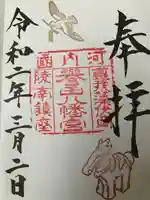 奉拝
河内國
八幡宮
陵南鎮座
令和二年三月二日